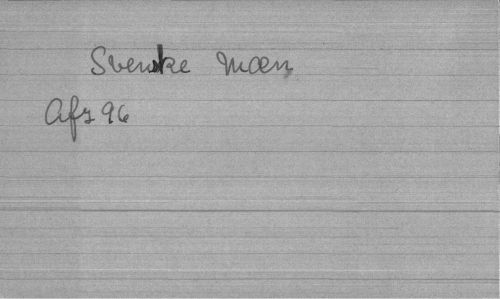 Svenske mæn,
Afz 96